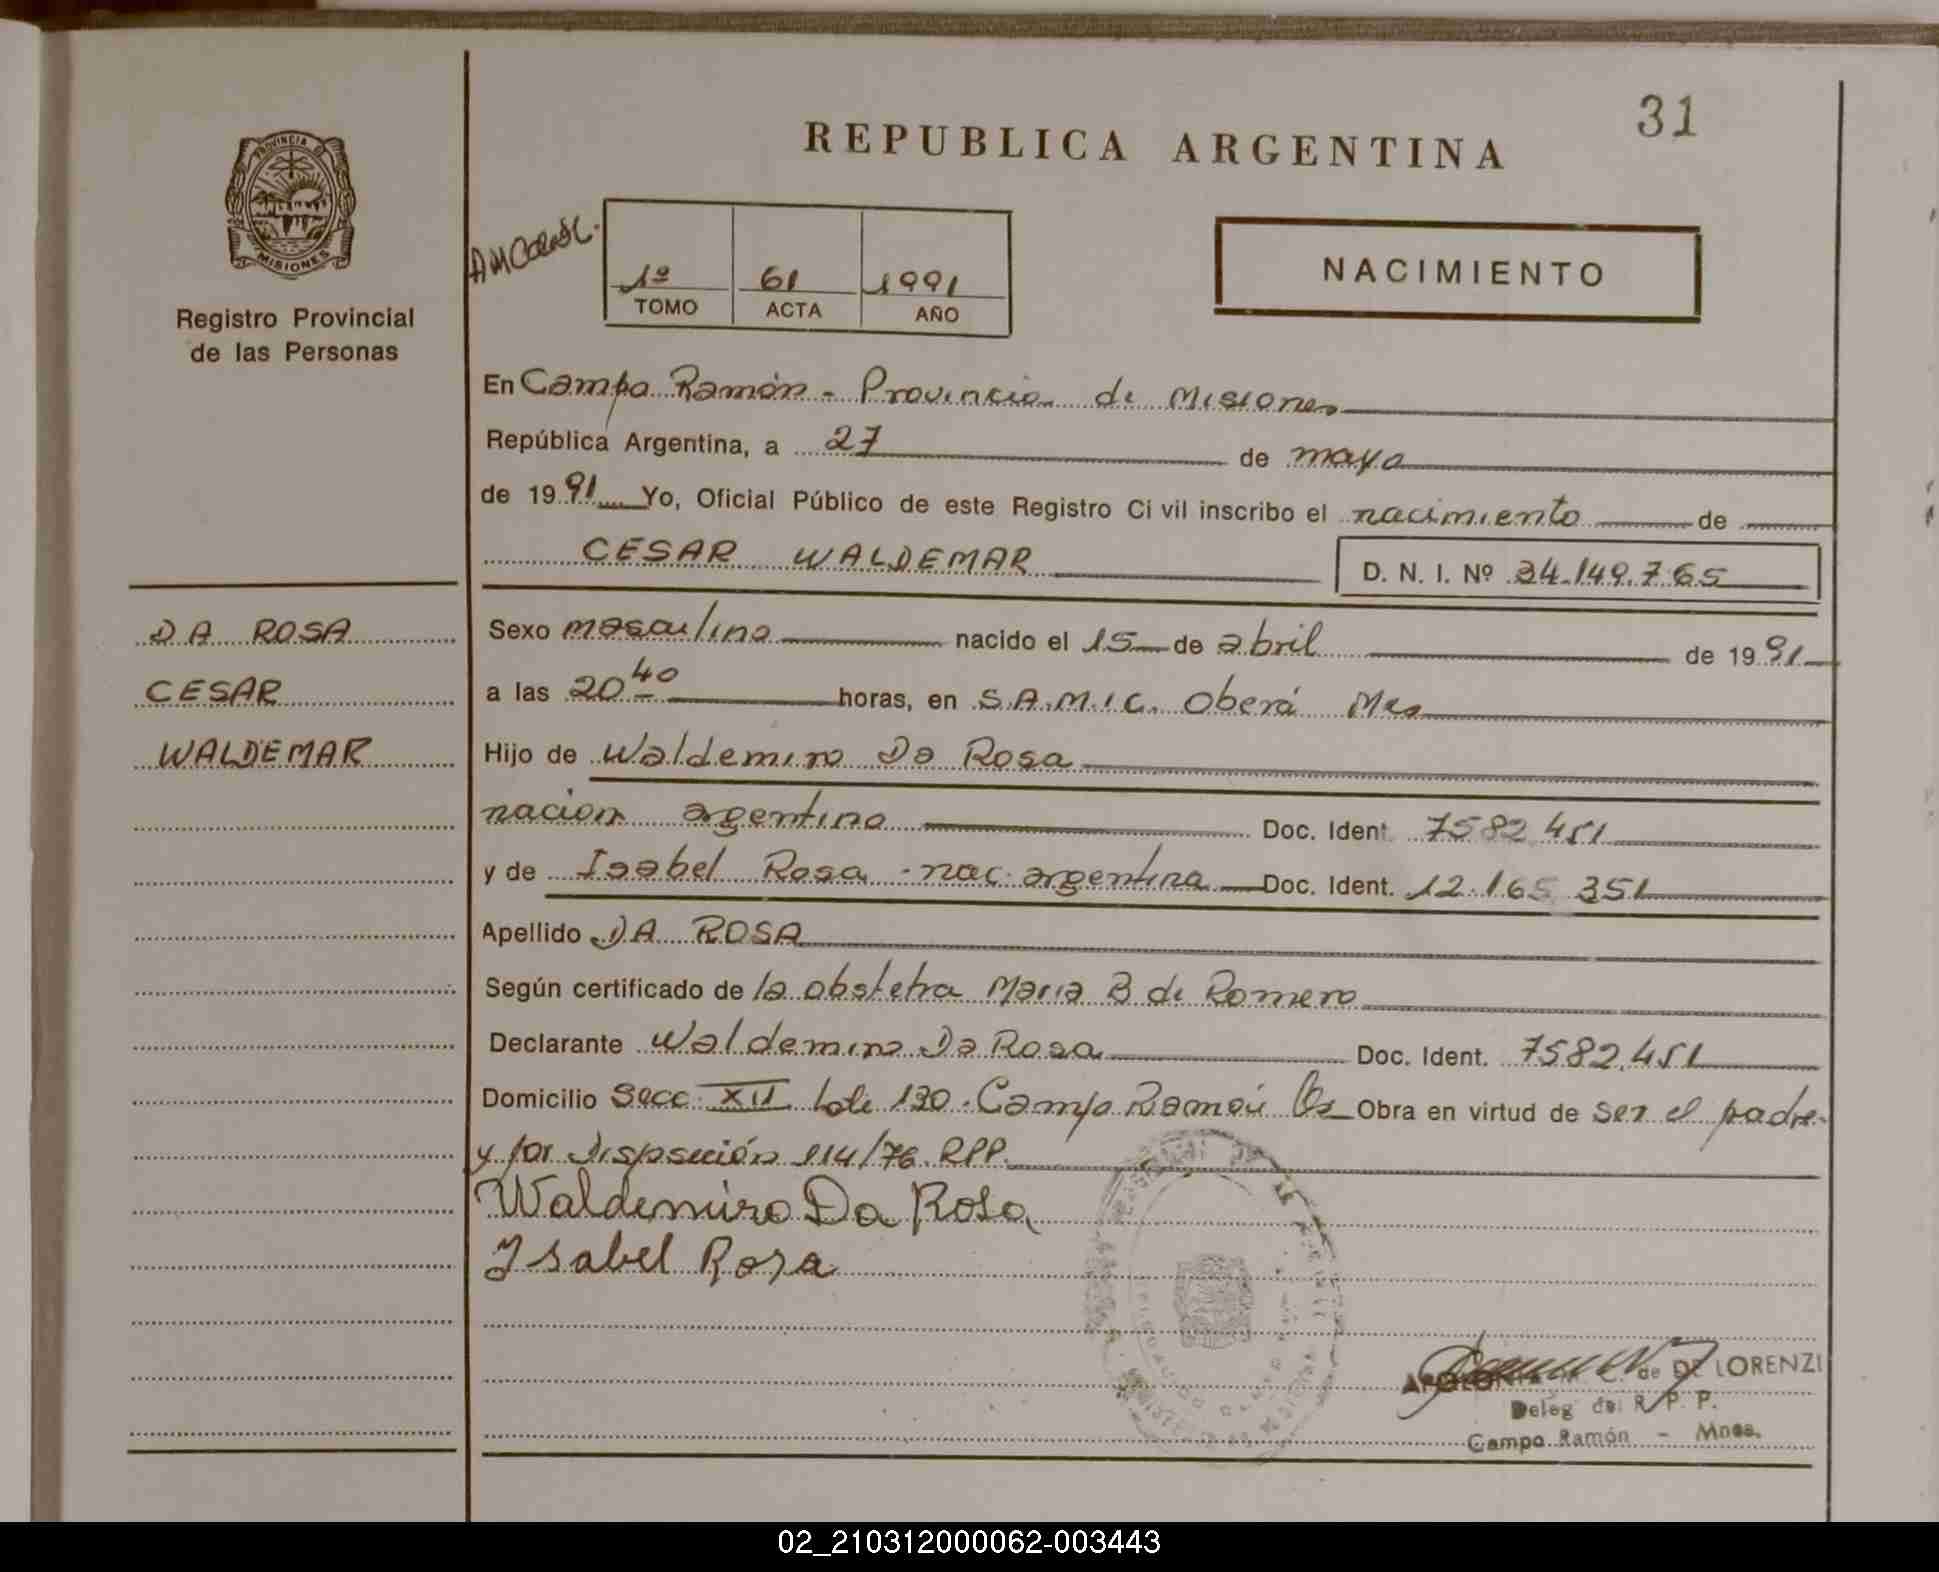 31
REPUBLICA ARGENTINA
PROVINCIA D
MISIONES
Registro Provincial
de las Personas
1º 61 1991
TOMO ACTA AÑO
NACIMIENTO
En Campo Ramón - Provincia de Misiones
República Argentina, a 27 de mayo
de 1991 Yo, Oficial Público de este Registro Civil inscribo el nacimiento de
CESAR WALDEMAR D. N. I. Nº 34.149.765
DA ROSA
CESAR
WALDEMAR
Sexo masculino nacido el 15 de abril de 1991
a las 20 40 horas, en S.A.M.I.C. Oberá Mes
Hijo de Waldemiro Da Rosa
nacion argentino Doc. Ident. 7582.451
y de Isabel Rosa - nac. argentina Doc. Ident. 12.165.351
Apellido DA ROSA
Según certificado de la obstetra Maria B de Romero
Declarante Waldemiro Da Rosa Doc. Ident. 7582.451
Domicilio Secc. XII Lote 190. Campo Ramón Obra en virtud de ser el padre.
y por Disposición 114/76 RPP.
Waldemiro Da Rosa
Isabel Rosa
de DE LORENZI
Deleg del R. P. P.
Campo Ramón - Mnes.
02_210312000062-003443